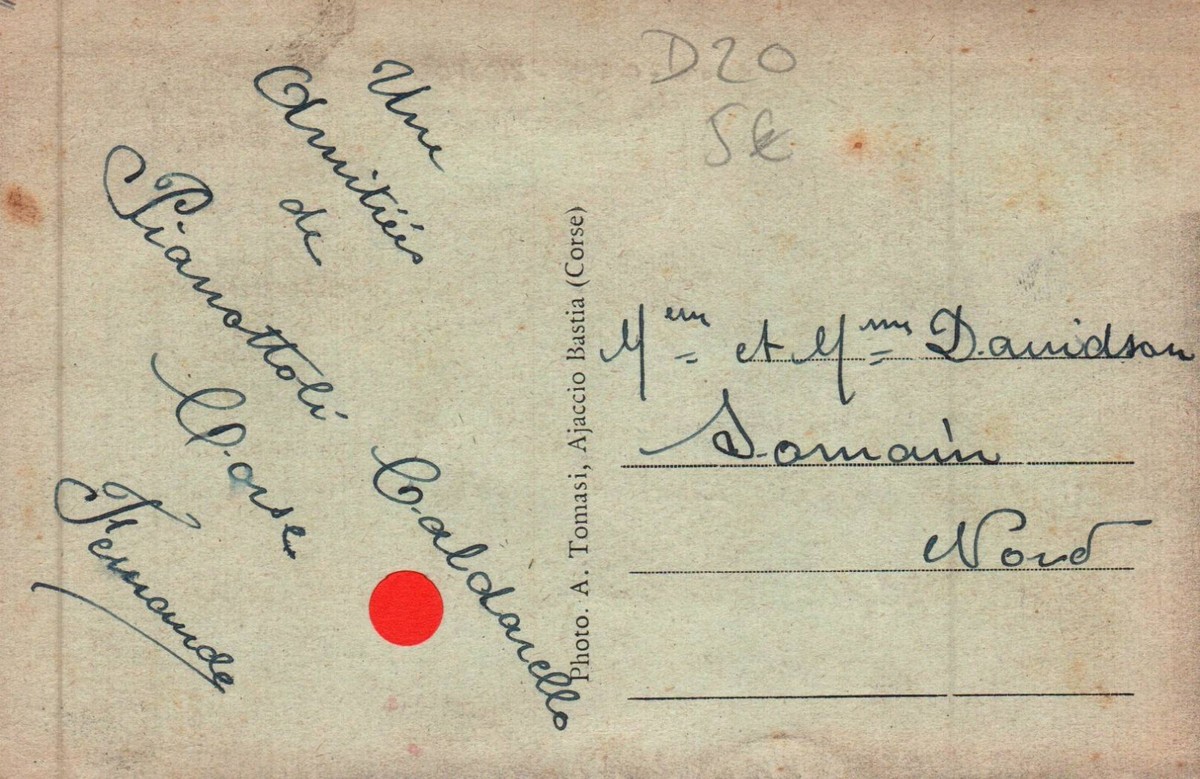 Une
Amitiées
de
Pianottoli Caldarello
Corse
Fernande
Photo. A. Tomasi, Ajaccio Bastia (Corse)
D20
5€
Mem et Mme Davidson
Somain
Nord